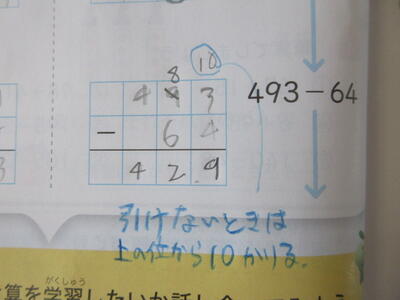 8 10
4 9 3
493－64
－ 6 4
4 2 9
引けないときは
上の位から10かりる。
がくしゅう
算を学習したいか話し合